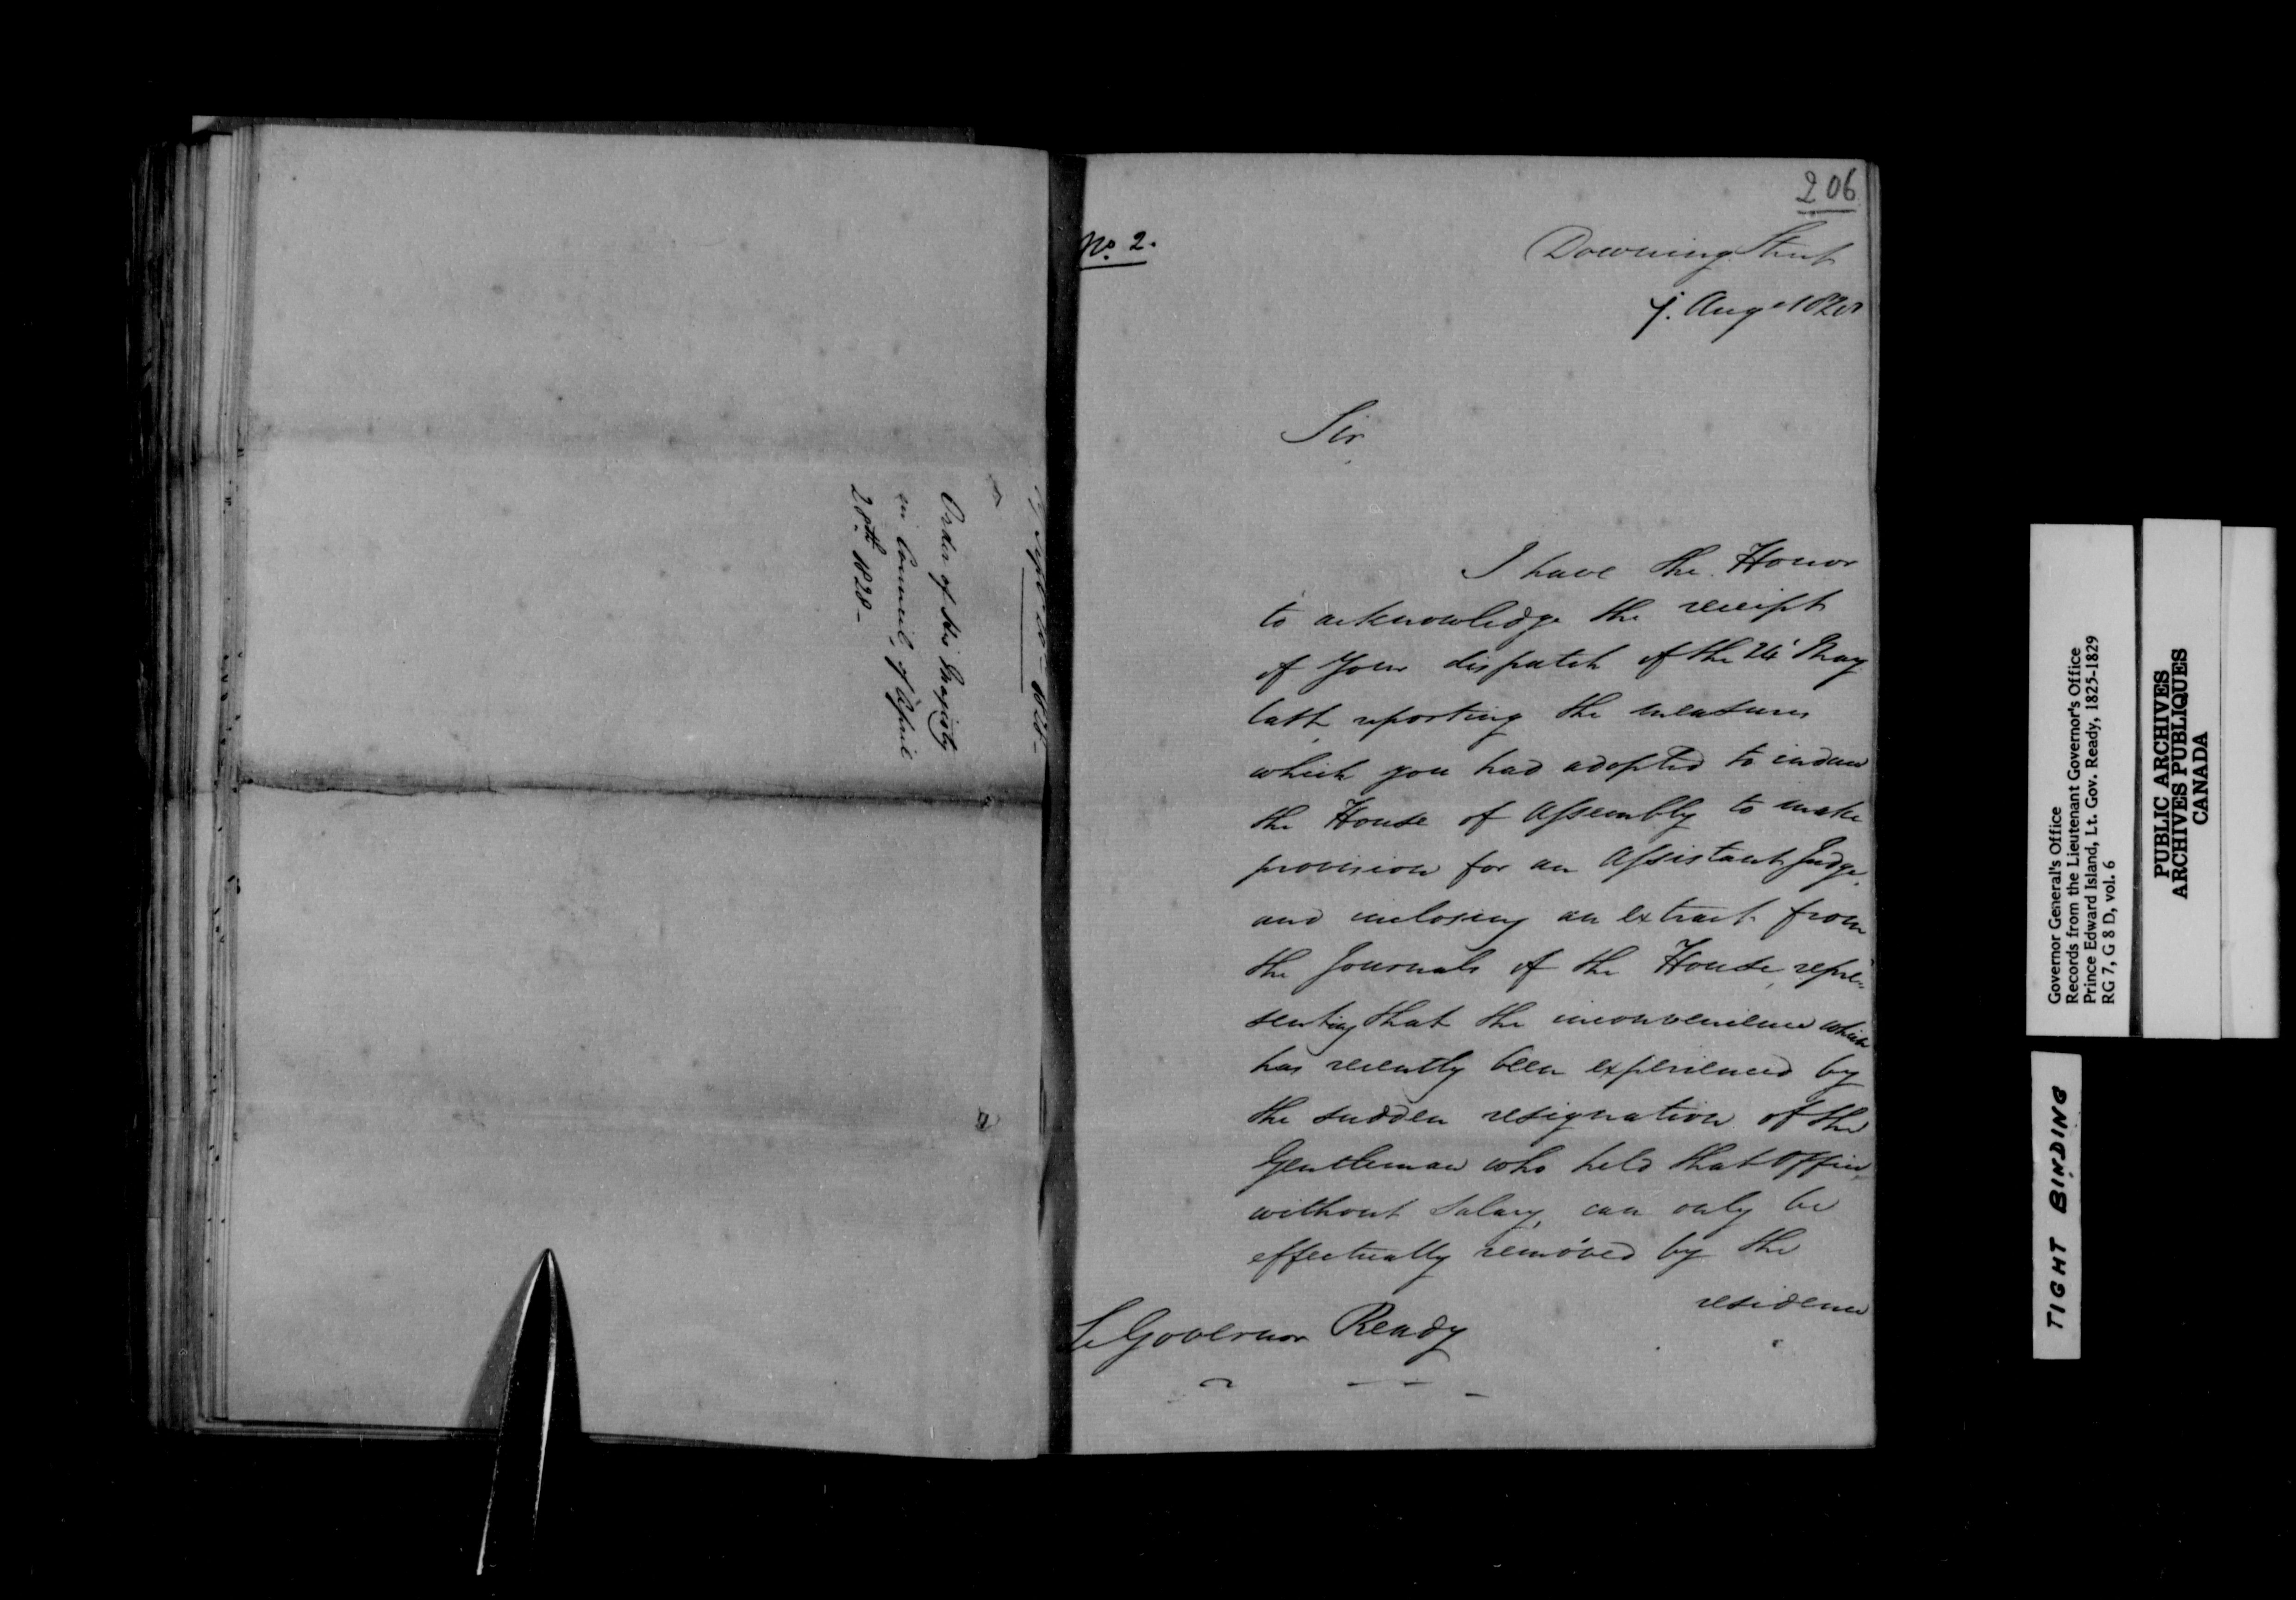 Order of His Majesty
in Council, of April
28th 1828-
206
No. 2.
Downing Street
Aug
Sir
I have the Honor
to acknowledge the receipt
of Your dispatch of the 24 May
last, reporting the measures
which you had adopted to induce
the House of Assembly to make
provision for an Assistant Judge,
and inclosing an extract from
the Journals of the House, repre-
senting that the inconvenience which
has recently been experienced by
the sudden resignation of the
Gentleman who held that Office
without Salary, can only be
effectually removed by the
residence
Lt Governor Ready
Governor General's Office
Records from the Lieutenant Governor's Office
Prince Edward Island, Lt. Gov. Ready, 1825-1829
RG 7, G 8 D, vol. 6
PUBLIC ARCHIVES
ARCHIVES PUBLIQUES
CANADA
TIGHT BINDING